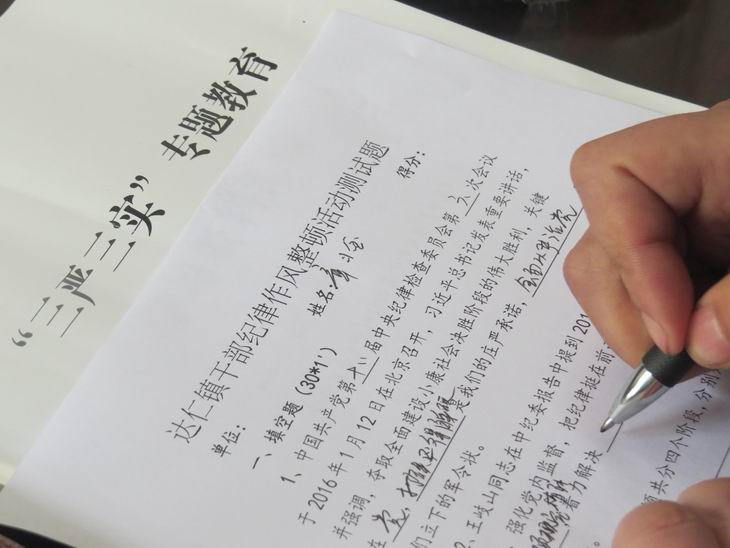 “三严三实”专题教育
达仁镇干部纪律作风整顿活动测试题
单位： 姓名： 得分：
一、填空题（30*1'）
1、中国共产党第十八届中央纪律检查委员会第六次会议
于2016年1月12日在北京召开，习近平总书记发表重要讲话，
并强调，夺取全面建设小康社会决胜阶段的伟大胜利，关键
在党， 是我们的庄严承诺，全面从严治党
们立下的军令状。
2、王岐山同志在中纪委报告中提到201
强化党内监督，把纪律挺在前
着力解决
共分四个阶段，分别